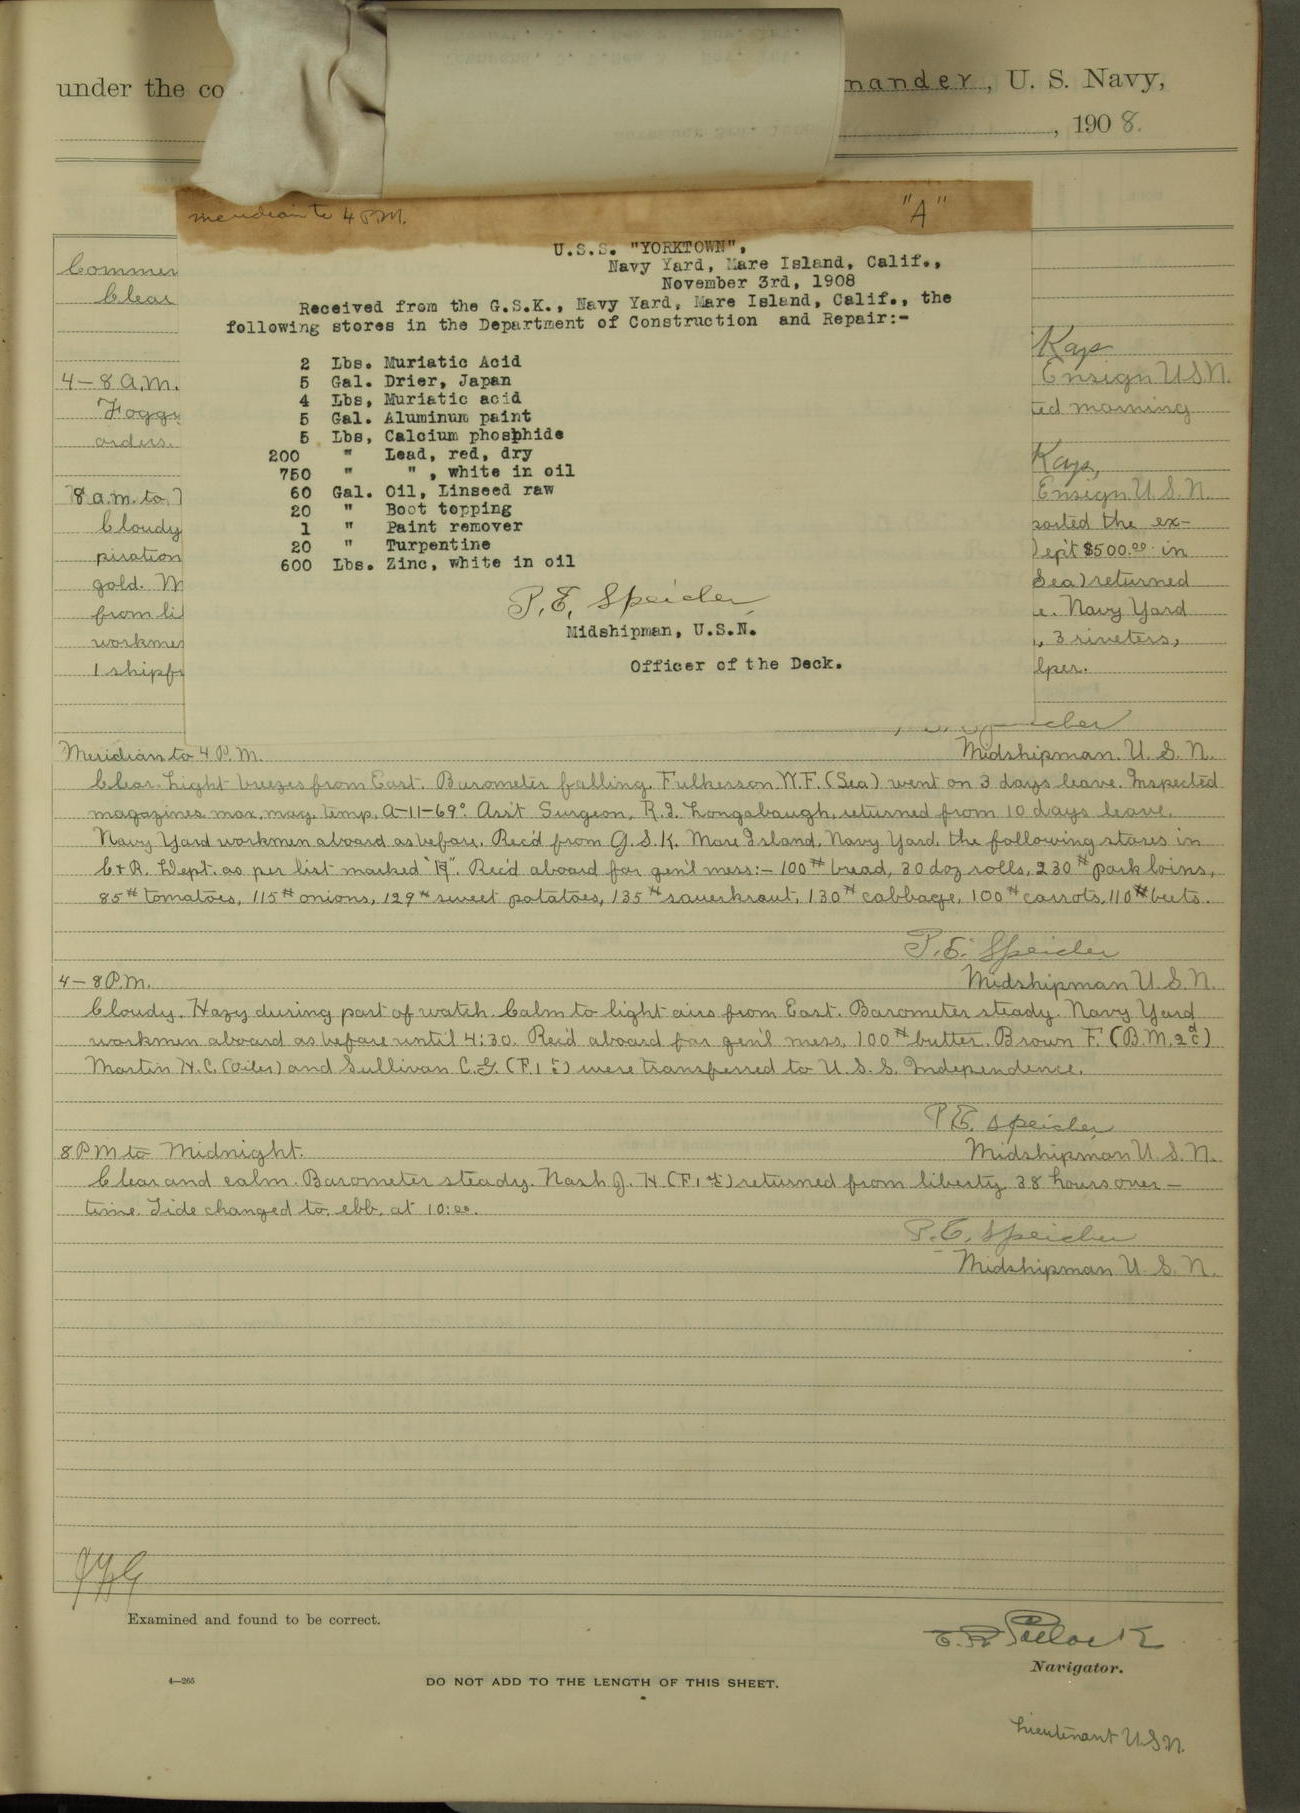 under the co nander, U. S. Navy,
, 1908.
Meridian to 4 P.M. "A"
U.S.S. "YORKTOWN",
Navy Yard, Mare Island, Calif.,
November 3rd, 1908
Received from the G.S.K., Navy Yard, Mare Island, Calif., the
following stores in the Department of Construction and Repair:-
2 Lbs. Muriatic Acid
5 Gal. Drier, Japan
4 Lbs, Muriatic acid
5 Gal. Aluminum paint
5 Lbs, Calcium phosphide
200 " Lead, red, dry
750 " " , white in oil
60 Gal. Oil, Linseed raw
20 " Boot topping
1 " Paint remover
20 " Turpentine
600 Lbs. Zinc, white in oil
P. E. Speicher
Midshipman, U.S.N.
Officer of the Deck.
Commen
Clear
Kays
4-8 a.m. Ensign U.S.N.
Foggy ted morning
orders.
Kays,
8 a.m. to Ensign U.S.N.
Cloudy ported the ex-
piration Dep't $500.00 in
gold. M Sea) returned
from li e. Navy Yard
workmen , 3 riveters,
1 shipf lper.
Speicher
Meridian to 4 P.M. Midshipman. U.S.N.
Clear. Light breezes from East. Barometer falling. Fulkerson W.F. (Sea) went on 3 days leave. Inspected
magazines max. mag. temp. A-11-69°. Ass't Surgeon, R.I. Longabaugh, returned from 10 days leave.
Navy Yard workmen aboard as before. Rec'd from G.S.K. Mare Island, Navy Yard, the following stores in
C & R. Dept. as per list marked "A". Rec'd aboard for gen'l mess:- 100# bread, 30 doz rolls, 230# pork loins,
85# tomatoes, 115# onions, 129# sweet potatoes, 135# sauerkraut, 130# cabbage, 100# carrots, 110# beets.
P. E. Speicher
4-8 P.M. Midshipman U.S.N.
Cloudy. Hazy during part of watch. Calm to light airs from East. Barometer steady. Navy Yard
workmen aboard as before until 4:30. Rec'd aboard for gen'l mess, 100# butter. Brown F. (B.M. 2d c)
Martin H.C. (Oiler) and Sullivan C.G. (F. 1 c) were transferred to U.S.S. Independence.
P. E. Speicher
8 P M to Midnight. Midshipman U.S.N.
Clear and calm. Barometer steady. Nash J. H. (F. 1 c) returned from liberty 38 hours over-
time. Tide changed to ebb, at 10:00.
P. E. Speicher
Midshipman U.S.N.
Examined and found to be correct.
Navigator.
4—265 DO NOT ADD TO THE LENGTH OF THIS SHEET.
Lieutenant U.S.N.